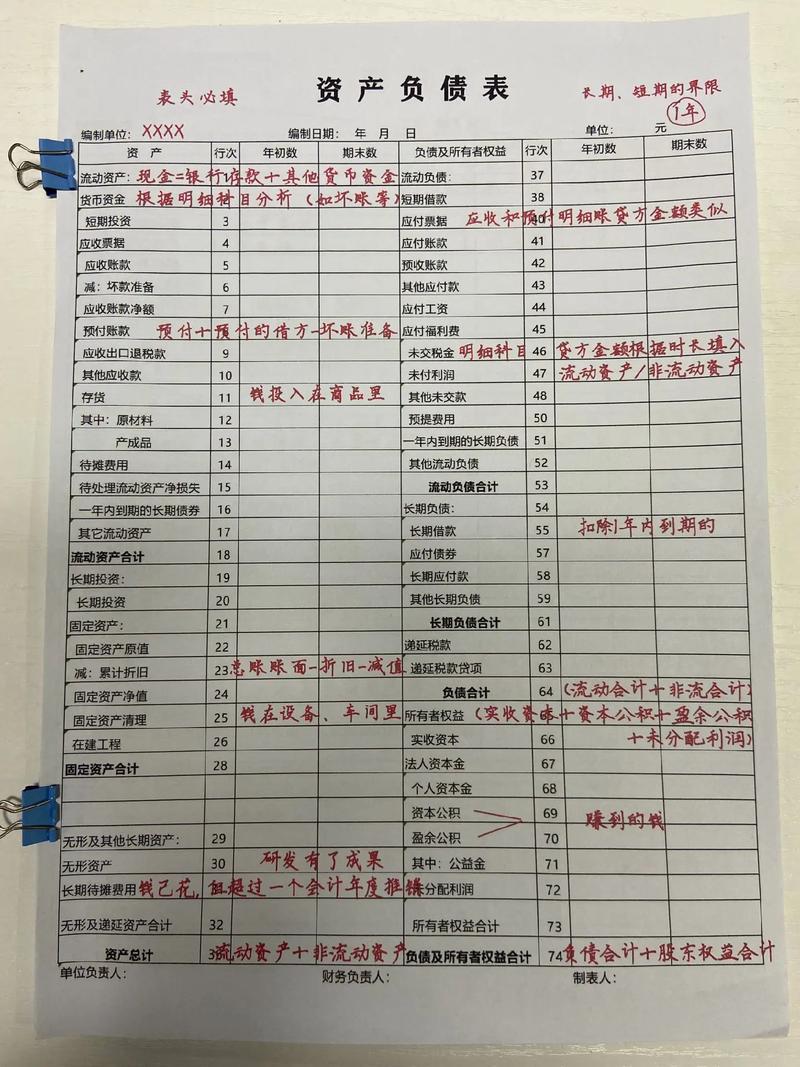 资产负债表
表头必填
长期、短期的界限
1年
编制单位：XXXX 编制日期： 年 月 日 单位： 元
资 产 行次 年初数 期末数 负债及所有者权益 行次 年初数 期末数
流动资产：现金=银行存款+其他货币资金 流动负债： 37
货币资金 根据明细科目分析（如坏账等） 短期借款 38
短期投资 3 应付票据 应收和预付明细账贷方金额类似
应收票据 4 应付账款 41
应收账款 5 预收账款 42
减：坏款准备 6 其他应付款 43
应收账款净额 7 应付工资 44
预付账款 预付+预付的借方-坏账准备 应付福利费 45
应收出口退税款 9 未交税金 明细科目 46 贷方金额根据时长填入
其他应收款 10 未付利润 47 流动资产/非流动资产
存货 11 钱投入在商品里 其他未交款 48
其中：原材料 12 预提费用 50
产成品 13 一年内到期的长期负债 51
待摊费用 14 其他流动负债 52
待处理流动资产净损失 15 流动负债合计 53
一年内到期的长期债券 16 长期负债： 54
其它流动资产 17 长期借款 55 扣除1年内到期的
流动资产合计 18 应付债券 57
长期投资： 19 长期应付款 58
长期投资 20 其他长期负债 59
固定资产： 21 长期负债合计 61
固定资产原值 22 递延税款 62
减：累计折旧 23 总账账面-折旧-减值 递延税款贷项 63
固定资产净值 24 负债合计 64 (流动合计+非流合计)
固定资产清理 25 钱在设备、车间里 所有者权益 (实收资本+资本公积+盈余公积
在建工程 26 实收资本 66 +未分配利润)
固定资产合计 28 法人资本金 67
个人资本金 68
资本公积 69 赚到的钱
无形及其他长期资产： 29 盈余公积 70
无形资产 30 研发有了成果 其中：公益金 71
长期待摊费用 钱已花，且超过一个会计年度摊销 未分配利润 72
无形及递延资产合计 32 所有者权益合计 73
资产总计 流动资产+非流动资产 负债及所有者权益合计 74 负债合计+股东权益合计
单位负责人： 财务负责人： 制表人：